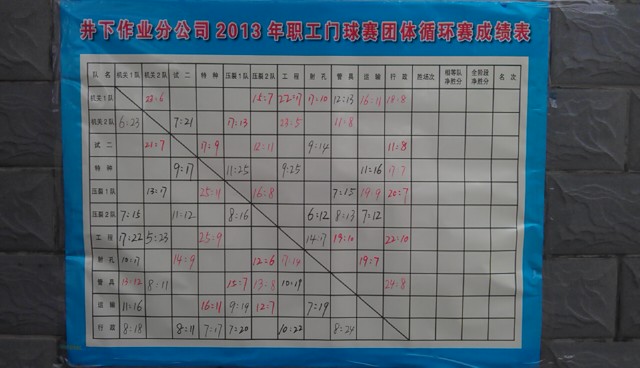 井下作业分公司2013年职工门球赛团体循环赛成绩表
队名 机关1队 机关2队 试二 特种 压裂1队 压裂2队 工程 射孔 管具 运输 行政 胜场次 相等队净胜分 全阶段净胜分 名次
机关1队 23:6 15:7 22:17 17:10 12:13 16:11 18:8
机关2队 6:23 7:21 17:13 23:5 11:8
试二 21:7 17:9 12:11 9:14 11:8
特种 9:17 11:25 9:25 11:16 17:7
压裂1队 13:17 25:11 16:8 7:15 19:9 20:7
压裂2队 7:15 11:12 8:16 6:12 8:13 7:12
工程 17:22 5:23 25:9 14:17 19:10 22:10
射孔 10:17 14:9 12:6 17:14 19:7
管具 13:12 8:11 15:7 13:8 10:19 24:8
运输 11:16 16:11 9:19 12:7 7:19
行政 8:18 8:11 7:17 7:20 10:22 8:24